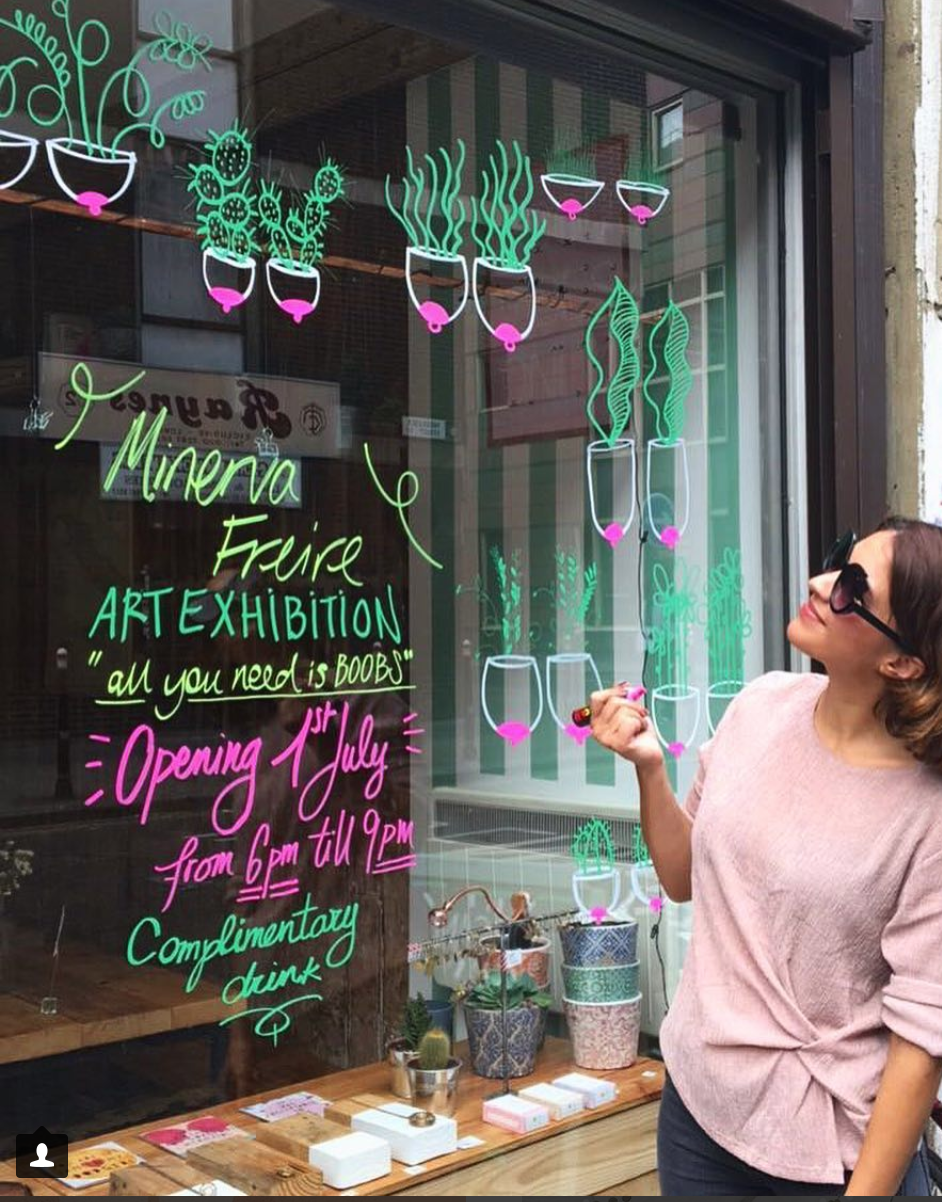 Minerva
Freire
ART EXHIBITION
"all you need is BOOBS"
Opening 1st July
from 6pm till 9pm
Complimentary
drink
Raynes